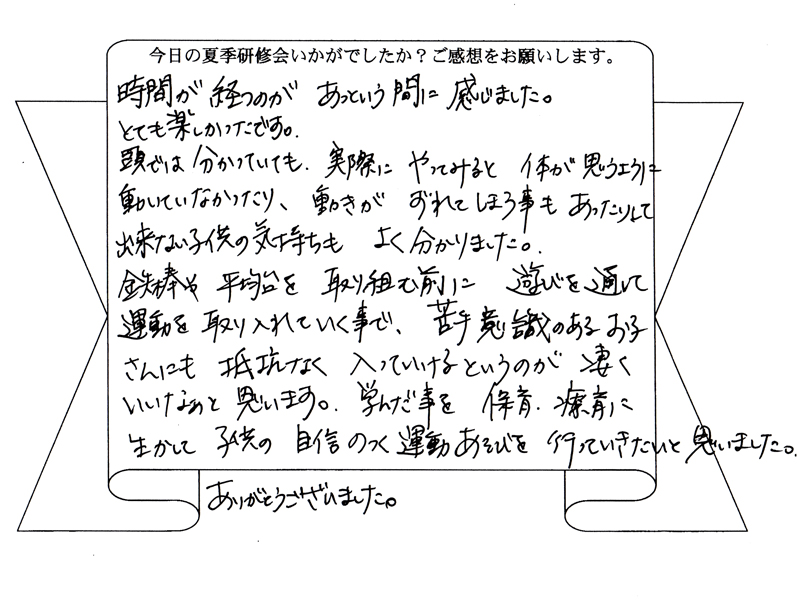 今日の夏季研修会いかがでしたか？ご感想をお願いします。
時間が 経つのが あっという間に 感じました。
とても楽しかったです。
頭では 分かっていても、実際に やってみると 体が 思うように
動いていなかったり、動きが ずれてしまう事も あったりして
出来ない子供の気持ちも よく分かりました。
鉄棒や 平均台を 取り組む前に 遊びを通して
運動を 取り入れていく事で、苦手意識のあるお子
さんにも 抵抗なく 入っていけるというのが 凄く
いいなぁと 思います。学んだ事を 保育、療育に
生かして 子供の 自信のつく 運動あそびを 行っていきたいと 思いました。
ありがとうございました。